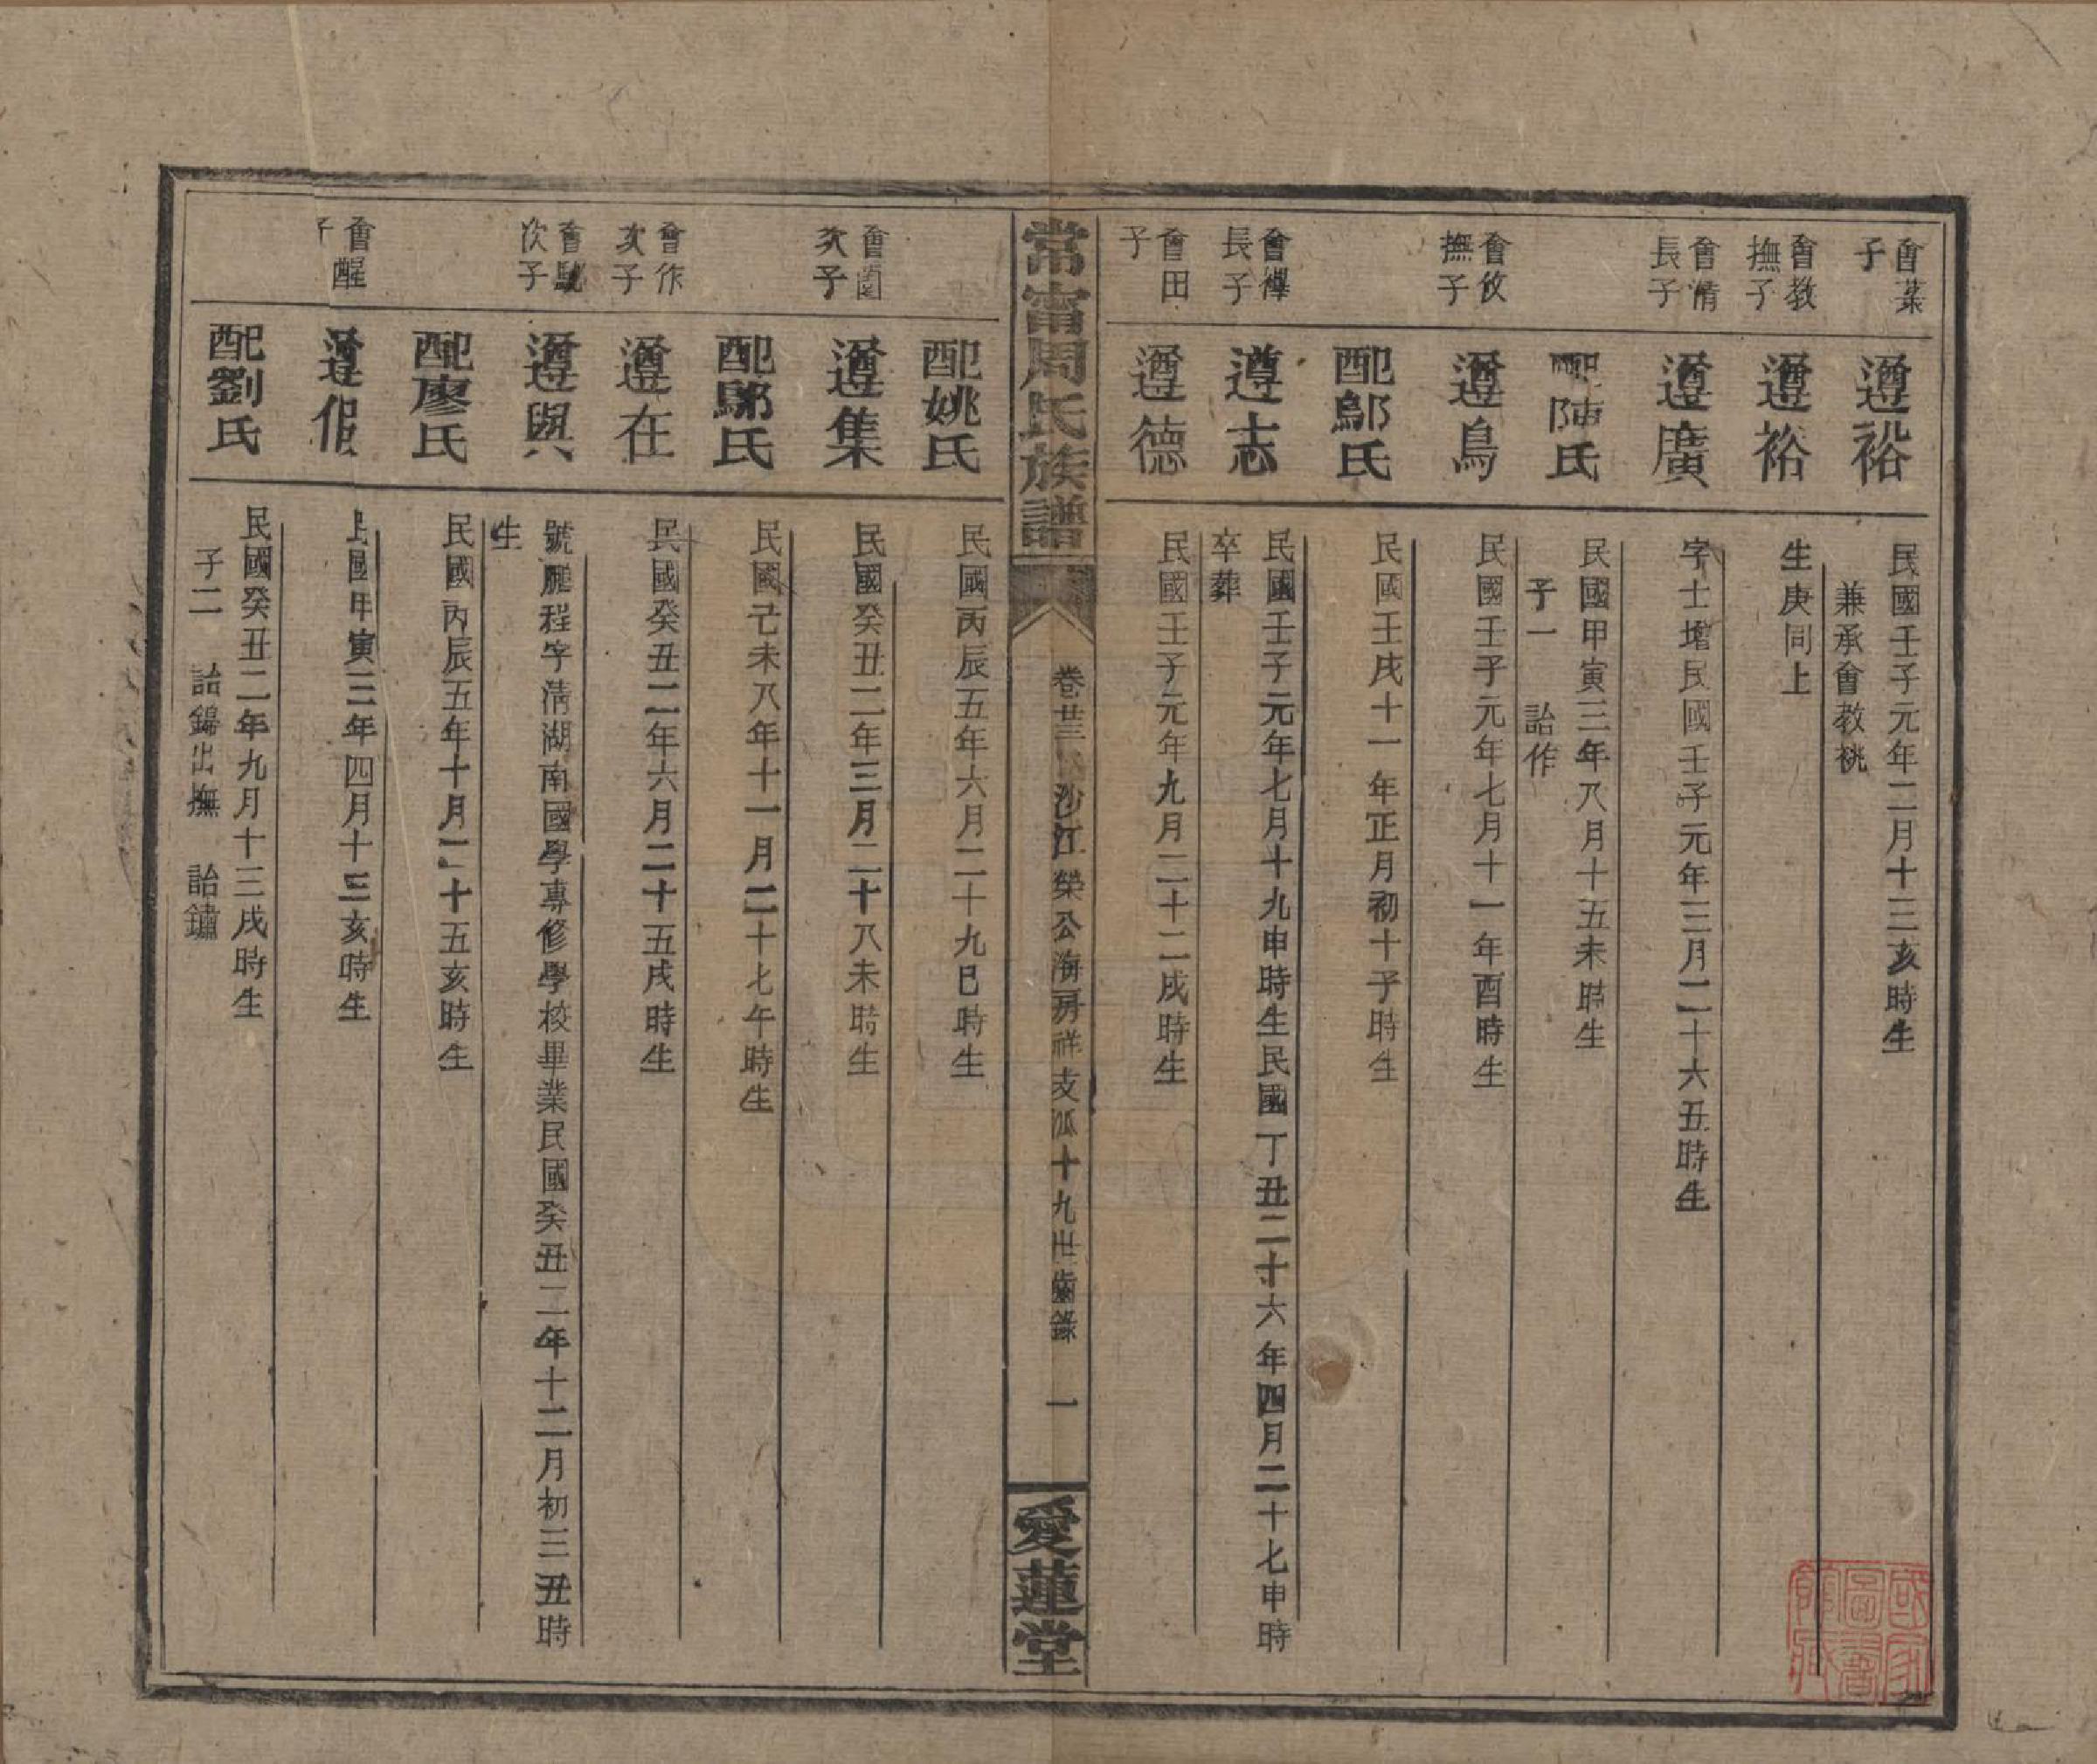 會菜子
遵裕
民國壬子元年二月十三亥時生
兼承會教祧
會教撫子
遵裕
生庚同上
會清長子
遵廣
字士增民國壬子元年三月二十六丑時生
配陳氏
民國甲寅三年八月十五未時生
子一 詒作
會攸撫子
遵鳥
民國壬子元年七月十一年酉時生
配鄔氏
民國壬戌十一年正月初十子時生
會禪長子
遵志
民國壬子元年七月十九申時生民國丁丑二十六年四月二十七申時
卒葬
會田子
遵德
民國壬子元年九月二十二戌時生
常甯周氏族譜
卷廿三 沙江榮公海房祥支派十九世齒錄 一
愛蓮堂
配姚氏
民國丙辰五年六月二十九巳時生
會園次子
遵集
民國癸丑二年三月二十八未時生
配鄔氏
民國己未八年十一月二十七午時生
會作次子
遵在
民國癸丑二年六月二十五戌時生
會駪次子
遵與
號鵬程字清湖南國學專修學校畢業民國癸丑二年十二月初三丑時
生
配廖氏
民國丙辰五年十月二十五亥時生
會醒子
遵假
民國甲寅三年四月十三亥時生
配劉氏
民國癸丑二年九月十三戌時生
子二 詒錦出撫 詒鏽
國家圖書館藏